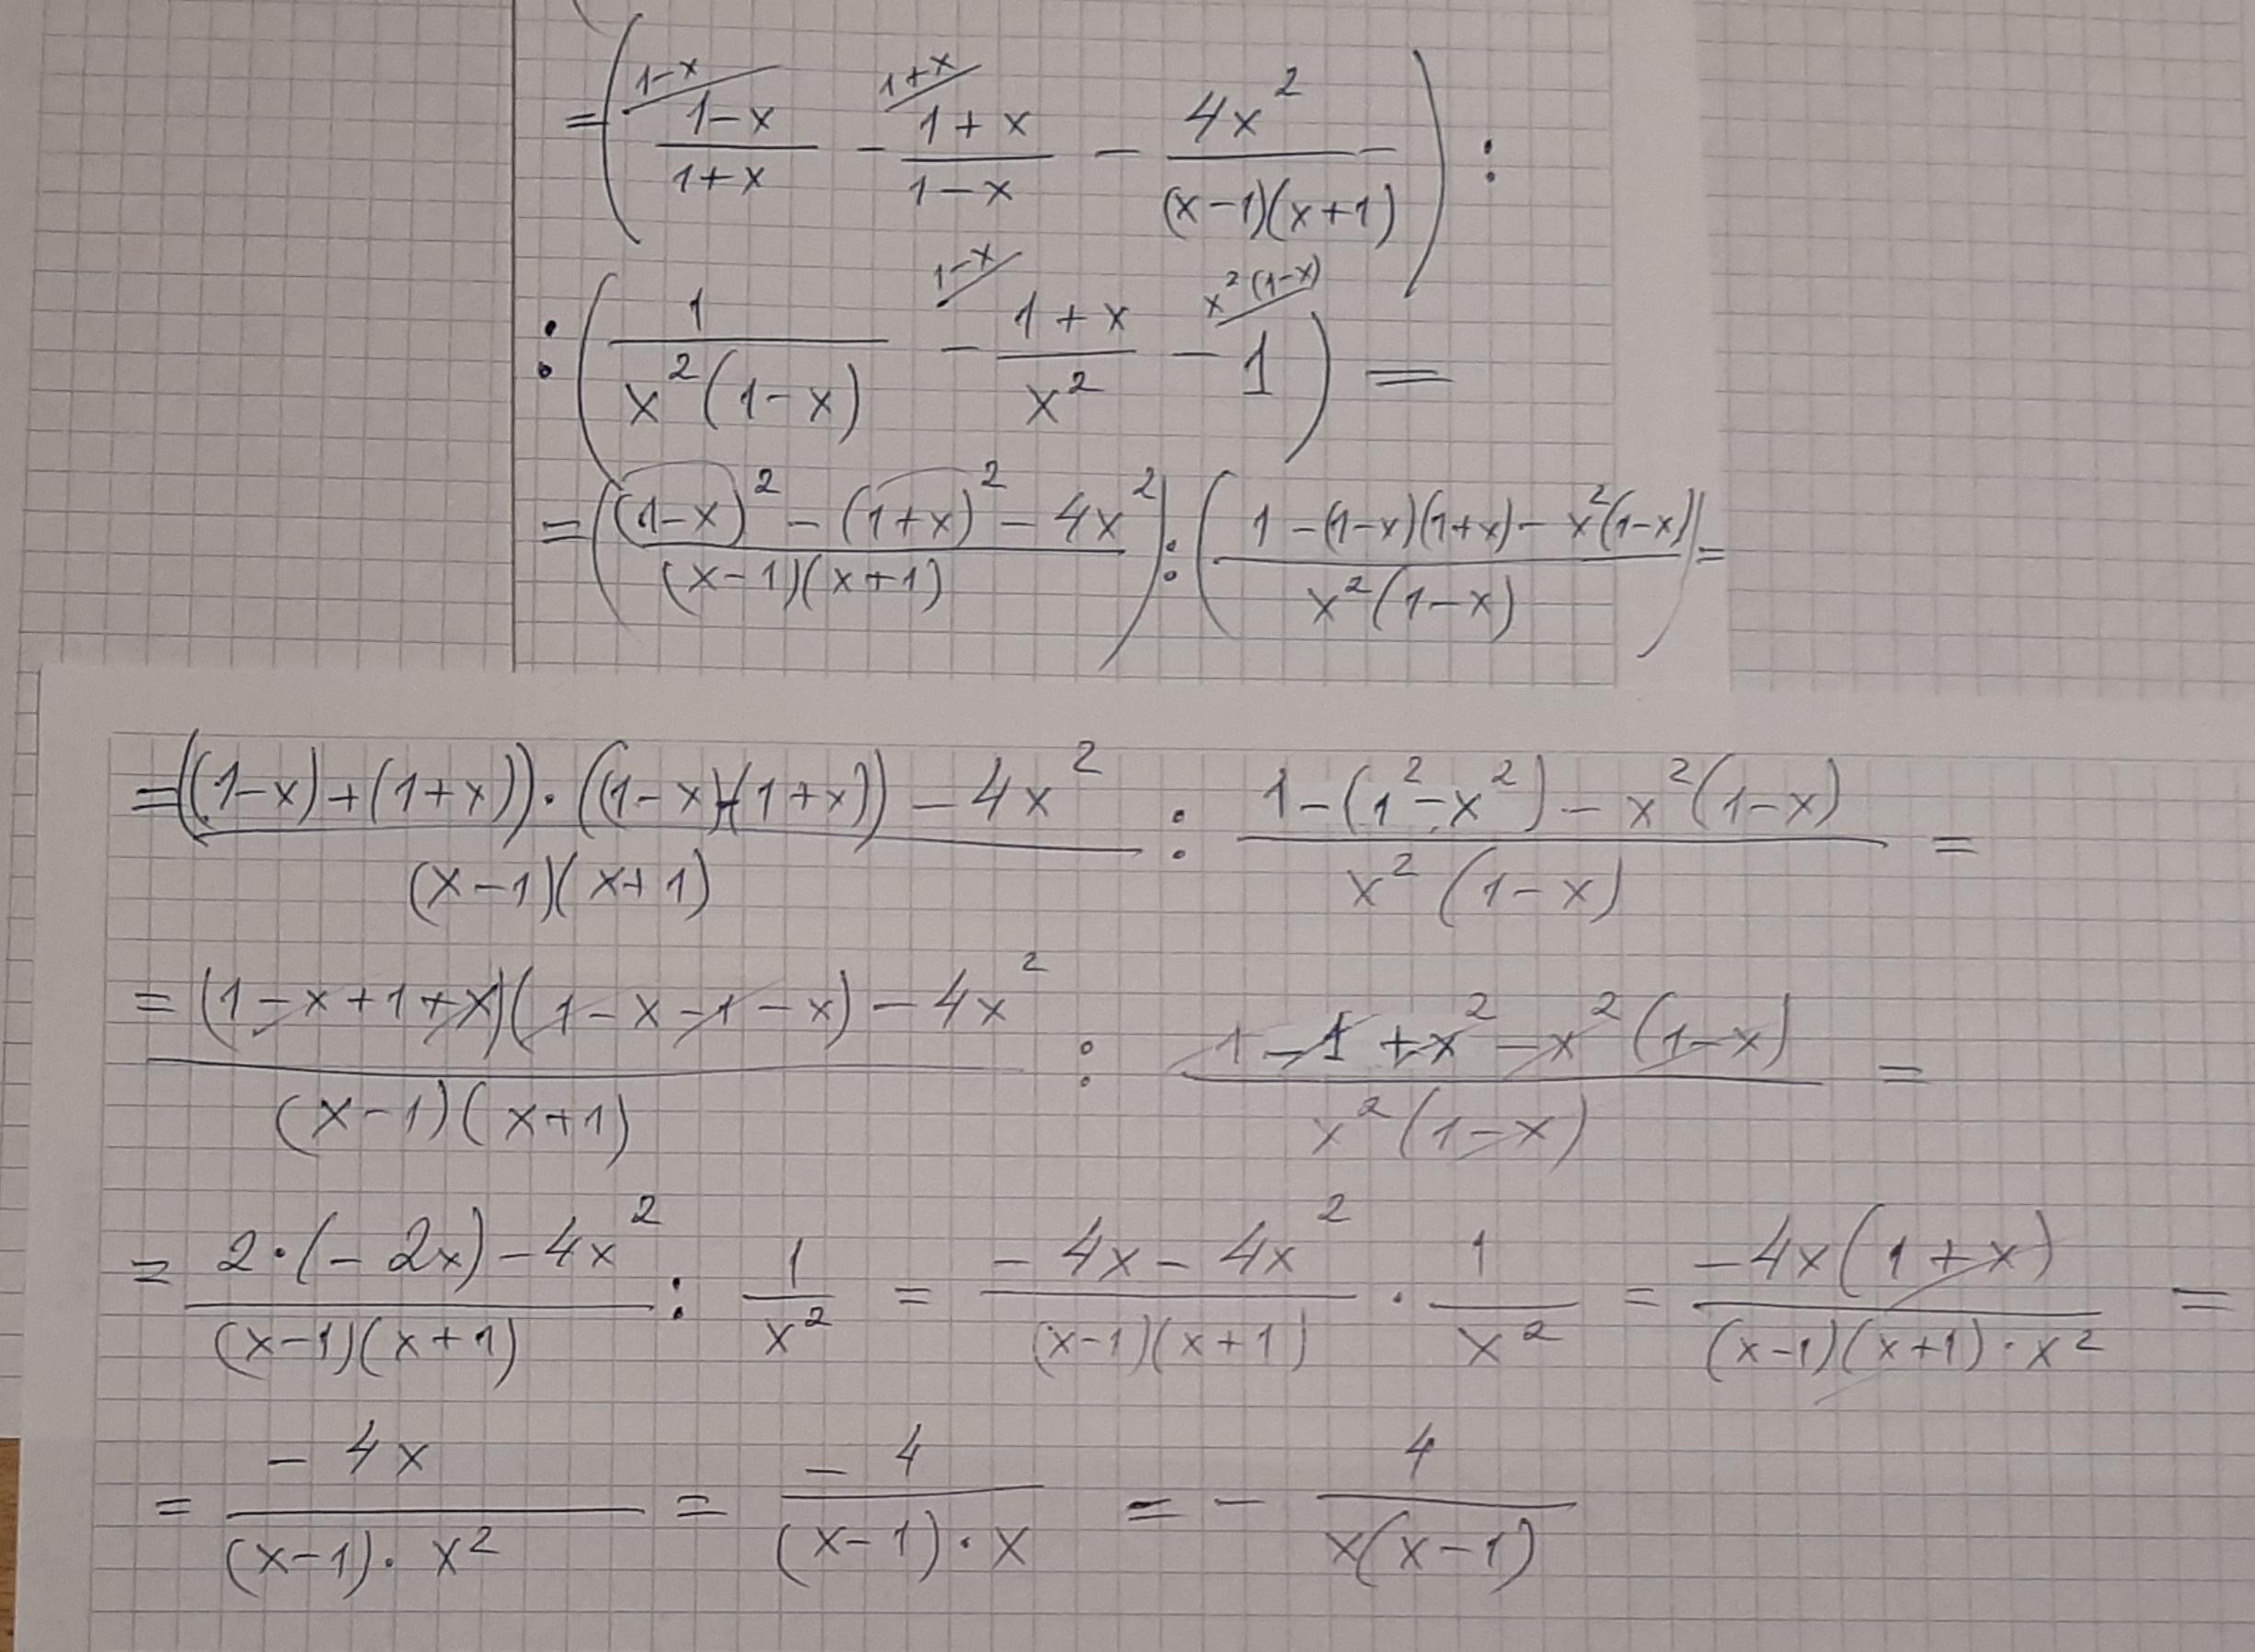 = ( (1-x)/(1+x) ^{1-x} - (1+x)/(1-x) ^{1+x} - 4x²/((x-1)(x+1)) ) :
: ( 1/(x²(1-x)) - (1+x)/x² ^{1-x} - 1 ^{x²(1-x)} ) =
= ( ((1-x)² - (1+x)² - 4x²)/((x-1)(x+1)) ) : ( (1-(1-x)(1+x)-x²(1-x))/(x²(1-x)) ) =
= (((1-x)+(1+x))·((1-x)-(1+x)) - 4x²)/((x-1)(x+1)) : (1-(1²-x²)-x²(1-x))/(x²(1-x)) =
= ((1-x+1+x)(1-x-1-x) - 4x²)/((x-1)(x+1)) : (1-1+x²-x²(1-x))/(x²(1-x)) =
= (2·(-2x)-4x²)/((x-1)(x+1)) : 1/x² = (-4x-4x²)/((x-1)(x+1)) · 1/x² = (-4x(1+x))/((x-1)(x+1)·x²) =
= (-4x)/((x-1)·x²) = (-4)/((x-1)·x) = - 4/(x(x-1))